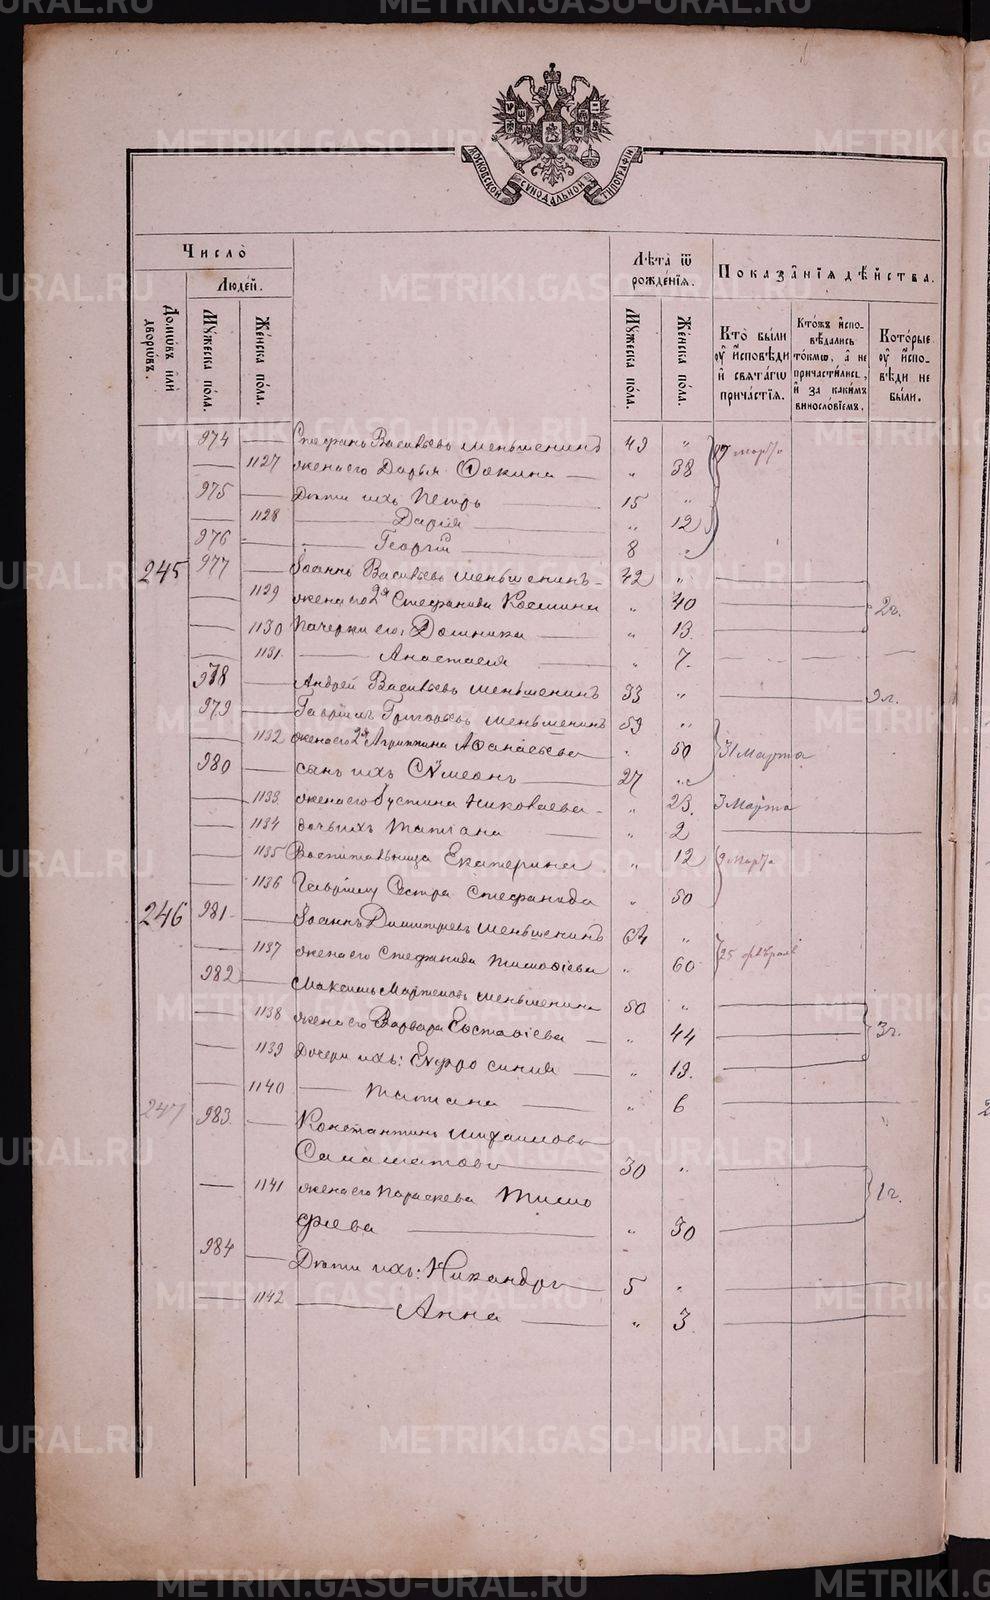 МОСКОВСКОЙ СѴНОДАЛЬНОЙ ТИПОГРАФІИ
Число̀
Люде́й.
Домѡ́въ и҆лѝ дворѡ́въ.
Мꙋ́жеска по́ла.
Же́нска по́ла.
Лѣ̑та ѿ рожде́нїѧ.
Мꙋ́жеска по́ла.
Же́нска по́ла.
Показа̑нїѧ дѣ́йства.
Кто̀ бы́ли ᲂу҆ и҆сповѣди и҆ свѧта́гѡ прича́стїѧ.
Кто́жъ и҆сповѣдались то́кмѡ, а҆ не причасти́лись, и҆ за каки́мъ винослов́їемъ.
Кото́рые ᲂу҆ и҆сповѣди не бы́ли.
974 Стефанъ Васильевъ Меньшенинъ 49 "
1127 жена его Дарья Фокина " 38
975 Дѣти ихъ Петръ 15 "
1128 Дарія " 12
976 Георгій 8 "
245 977 Іоаннъ Васильевъ Меньшенинъ 42 "
1129 жена его 2я Стефанида Космина " 40 2г.
1130 Пачерки его: Домника " 13.
1131. Анастасія " 7.
978 Андрей Васильевъ Меньшенинъ 33 " 9г.
979 Гавріилъ Григорьевъ Меньшенинъ 59 "
1132 жена его 2я Агриппина Афанасьева " 50 31 Марта
980 сынъ ихъ Сѵмеонъ 27 "
1133. жена его Іустина Николаева " 23. 3 Марта
1134 дочь ихъ Татіана " 2
1135 Воспитанница Екатерина " 12 9 Марта
1136 Гавріилу Сестра Стефанида " 50
246 981 Іоаннъ Димитріевъ Меньшенинъ 64 "
1137 жена его Стефанида Тимофіева " 60 25 февраля
982 Максимъ Мартемовъ Меньшенинъ 50 "
1138 жена его Варвара Евстафіева " 44 3г.
1139 Дочери ихъ: Еѵфросинія " 19.
1140 Татіана " 6
247 983 Константинъ Михаиловъ
Саламатовъ 30 "
1141 жена его Параскева Тимо 1г.
фіева " 30
984 Дѣти ихъ: Никандръ 5 "
1142 Анна " 3
METRIKI.GASO-URAL.RU